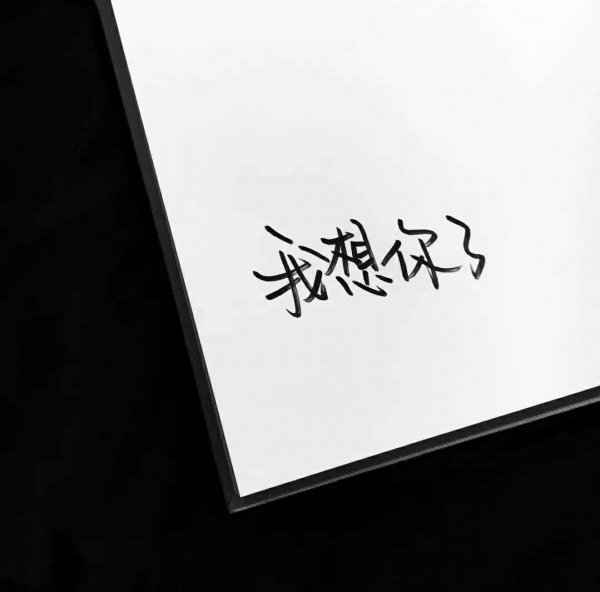 我想你了